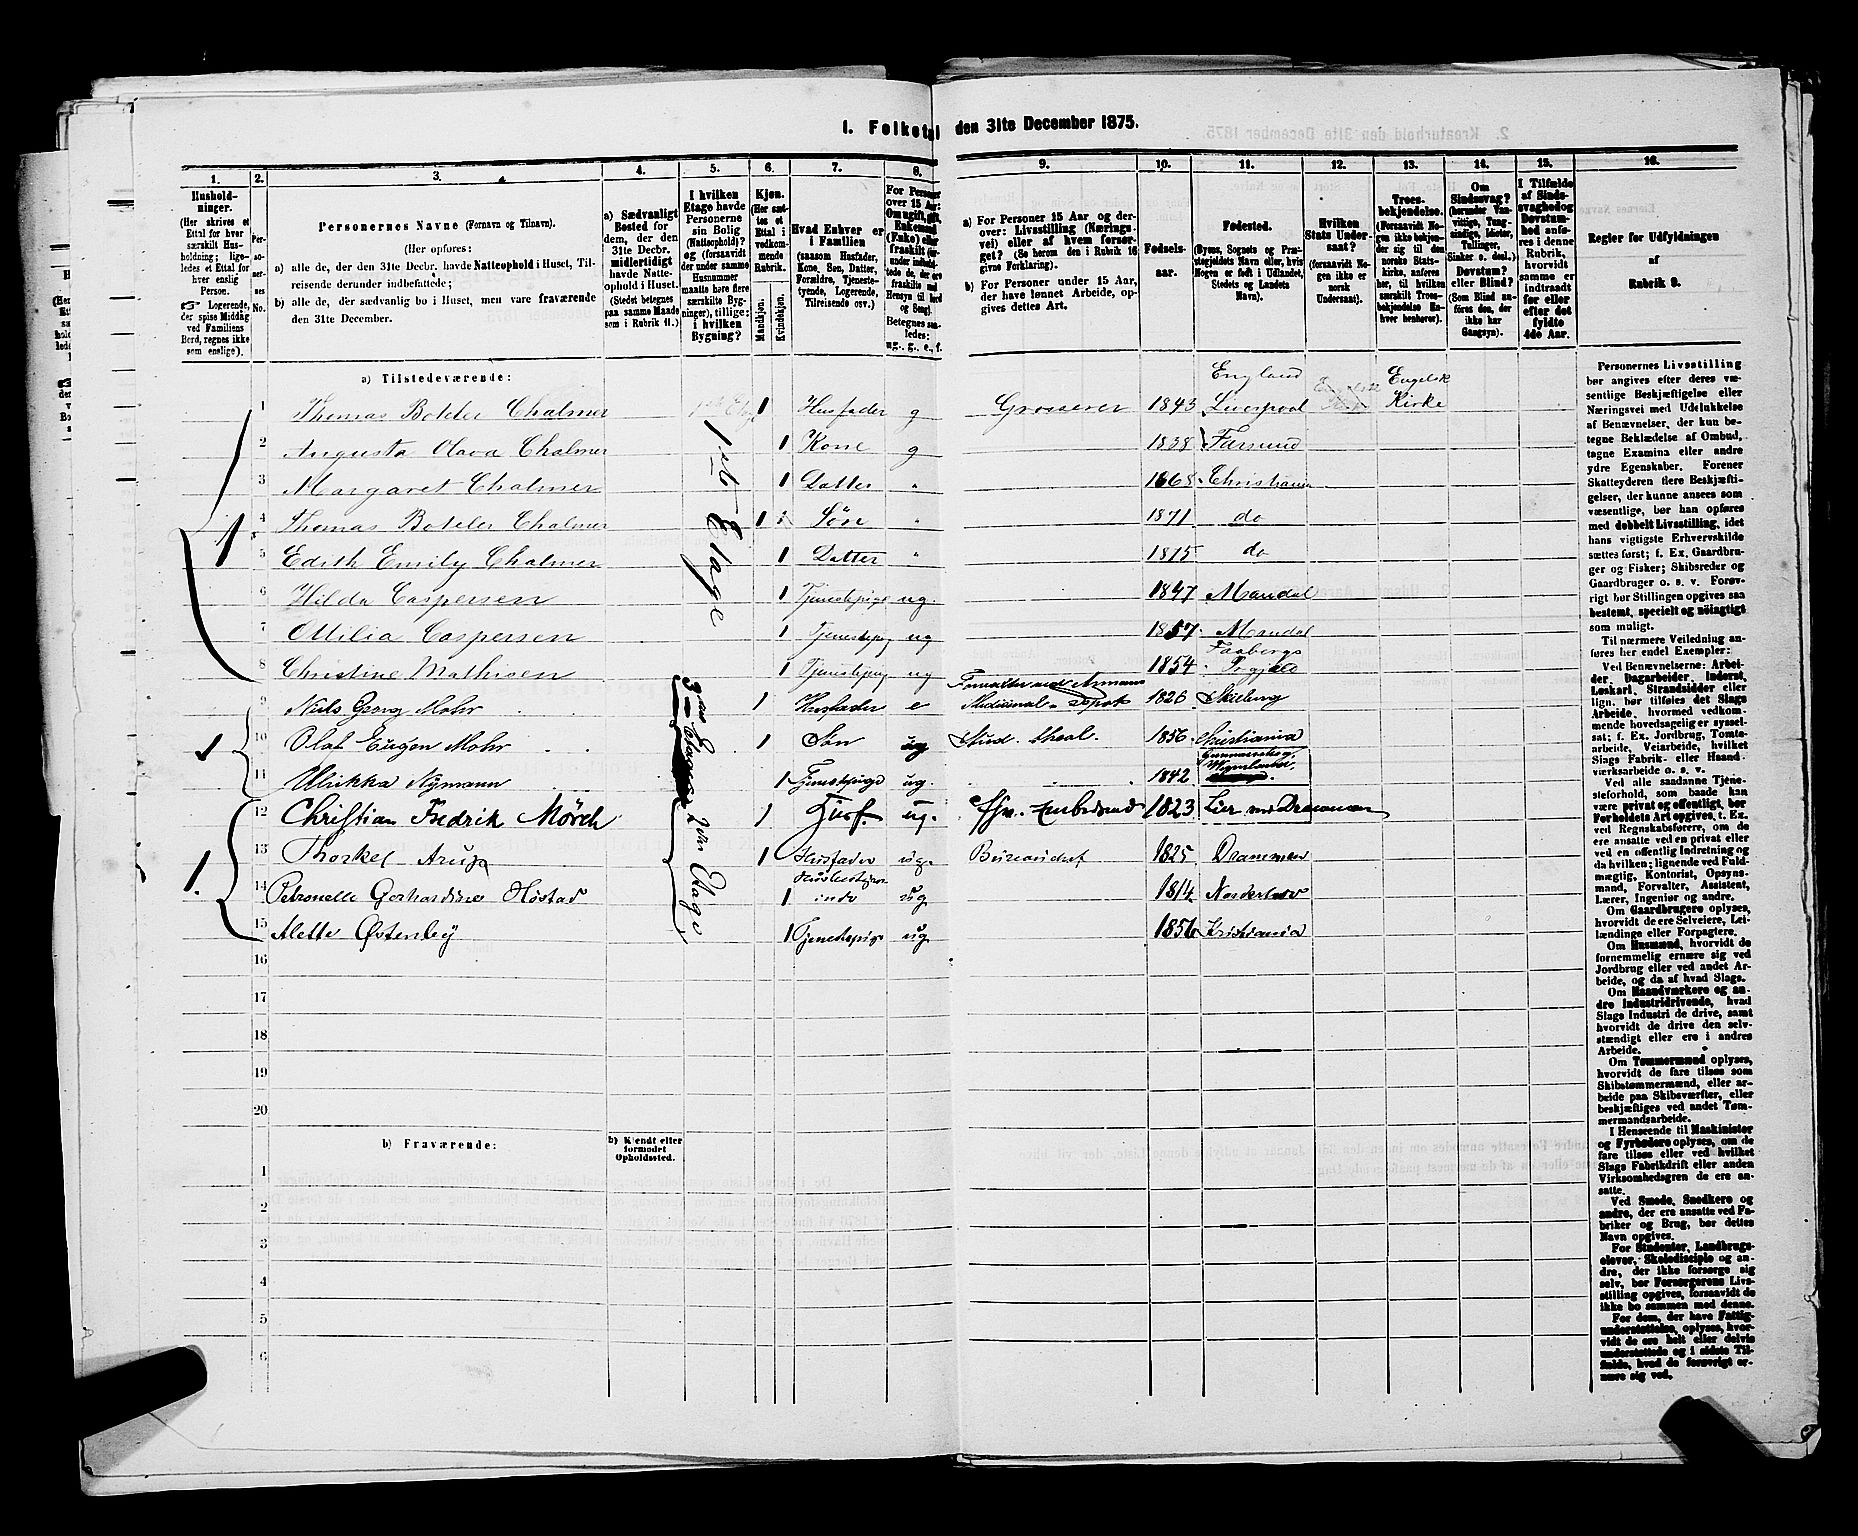 1. Folketal den 31te December 1875.
1. 2. 3. 4. 5. 6. 7. 8. 9. 10. 11. 12. 13. 14. 15. 16.
Hushold-
ninger.
(Her skrives et
Ettal for hver
særskilt Hus-
holdning; lige-
ledes et Ettal for
hver enslig
Person.
☞ Logerende,
der spise Middag
ved Familiens
Bord, regnes ikke
som enslige).
Per-
so-
ner-
nes
No.
Personernes Navne (Fornavn og Tilnavn).
(Her opføres:
a) alle de, der den 31te Decbr. havde Natteophold i Huset, Til-
reisende derunder indbefattede;
b) alle de, der sædvanlig bo i Huset, men vare fraværende
den 31te December.
a) Sædvanligt
Bosted for
dem, der den
31te Decbr.
midlertidigt
havde Natte-
ophold i Huset.
(Stedet betegnes
paa samme Maade
som i Rubrik 11.)
I hvilken
Etage havde
Personerne
sin Bolig
(Natteophold)?
og (forsaavidt
der under samme
Husnummer
maatte høre flere
særskilte Byg-
ninger), tillige:
i hvilken
Bygning?
Kjøn.
(Her sæt-
tes et
Ettal i
vedkom-
mende
Rubrik.
Mandkjøn.
Kvindekjøn.
Hvad Enhver er
i Familien
(saasom Husfader,
Kone, Søn, Datter,
Forældre, Tjeneste-
tyende, Logerende,
Tilreisende osv.)
For Personer
over 15 Aar:
Om ugift, gift,
Enkemand
(Enke) eller
fraskilt
Betegnes saa-
ledes:
ug., g., e., f.
a) For Personer 15 Aar og der-
over: Livsstilling (Nærings-
vei) eller af hvem forsør-
get? (Se herom den i Rubrik 16
givne Forklaring).
b) For Personer under 15 Aar,
der have lønnet Arbeide, op-
gives dettes Art.
Fødsels-
aar.
Fødested.
(Byens, Sognets og Præ-
stegjeldets Navn eller, hvis
Nogen er født i Udlandet,
Stedets og Landets
Navn).
Hvilken
Stats Under-
saat?
(forsaavidt No-
gen ikke er
norsk
Undersaat).
Troes-
bekjendelse.
(Forsaavidt No-
gen ikke bekjen-
der sig til den
norske Stats-
kirke, anføres
her, til hvilken
særskilt Troes-
bekjendelse En-
hver henhører).
Om
Sindssvag?
(herunder Van-
vittige, Tung-
sindige, Idioter,
Tullinger,
Sinker o. desl.)
Døvstum?
eller Blind?
(Som Blind an-
føres den, der
ikke har
Gangsyn).
I Tilfælde
af Sinds-
svaghed og
Døvstum-
hed anfø-
res i denne
Rubrik,
hvorvidt
samme er
indtraadt
før eller
efter det
fyldte
4de Aar.
Regler for Udfyldningen
af
Rubrik 9.
a) Tilstedeværende:
1 Thomas Boteler Chalmer 1 Husfader g Grosserer 1843 England Liverpool Engelsk Kirke
2 Augusta Olava Chalmer 1 Kone g 1838 Farsund
3 Margaret Chalmer 1 Datter " 1868 Christiania
4 Thomas Boteler Chalmer 1 Søn " 1871 do
5 Edith Emily Chalmer 1 Datter " 1875 do
6 Hilda Caspersen 1 Tjenestepige ug. 1847 Mandal
7 Ottilia Caspersen 1 Tjenestepig ug 1857 Mandal
8 Christine Mathisen 1 Tjenestepig ug 1854 Faabergs Prgjeld
1
1ste Etage
9 Niels Georg Mohr 1 Husfader e 1826
10 Olaf Eugen Mohr 1 Søn ug Stud. theol. 1856 Kristiania
11 Ulrikka Nymann 1 Tjenestepige ug. 1842
1
12 Christian Fredrik Mörch 1 Husf. ug. 1823 Lier ved Drammen
13 Thorkel Arup 1 Husfader ug. Bureauchef 1825 Drammen
14 Petronelle Gerhardine Høstad 1 ug. 1814
15 Alette Østenbÿ 1 Tjenestepige ug. 1856 Kristiania
1.
2den Etage
16
17
18
19
20
b) Fraværende:
b) Kjendt eller
formodet
Opholdssted.
1
2
3
4
5
6
Personernes Livsstilling
bør angives efter deres væ-
sentlige Beskjæftigelse eller
Næringsvei med Udelukkelse
af Benævnelser, der kun be-
tegne Beklædelse af Ombud,
tagne Examina eller andre
ydre Egenskaber. Forener
Skatteyderen flere Beskjæfti-
gelser, der kunne ansees som
væsentlige, bør han opføres
med dobbelt Livsstilling, idet
hans vigtigste Erhvervskilde
sættes først; f. Ex. Gaardbru-
ger og Fisker; Skibsreder og
Gaardbruger o. s. v. Forøv-
rigt bør Stillingen opgives saa
bestemt, specielt og nöiagtigt
som muligt.
Til nærmere Veiledning an-
føres her endel Exempler:
Ved Benævnelserne: Arbei-
der, Dagarbeider, Inderst,
Løskarl, Strandsidder eller
lign. bør tilføies det Slags
Arbeide, hvormed vedkom-
mende hovedsagelig er syssel-
sat; f. Ex. Jordbrug, Tomte-
arbeide, Veiarbeide, hvilket
Slags Fabrik- eller Haand-
værksarbeide o. s. v.
Ved alle saadanne Tjene-
steforhold, som baade kan
være privat og offentligt, bør
Forholdets Art opgives, t. Ex.
ved Regnskabsførere, om de
ere ansatte ved en privat eller
ved en offentlig Indretning og
da hvilken; lignende ved Fuld-
mægtig, Kontorist, Opsyns-
mand, Forvalter, Assistent,
Lærer, Ingeniør og andre.
Om Gaardbrugere oplyses,
hvorvidt de ere Selveiere, Lei-
lændinge eller Forpagtere.
Om Husmænd, hvorvidt de
fornemmelig ernære sig ved
Jordbrug eller ved andet Ar-
beide, og da af hvad Slags.
Om Haandværkere og an-
dre Industridrivende, hvad
Slags Industri de drive, samt
hvorvidt de drive den selv-
stændigt eller ere i andres
Arbeide.
Om Tømmermænd oplyses,
hvorvidt de fare tilsøs som
Skibstømmermænd, eller ar-
beide paa Skibsværfter, eller
beskjæftiges ved andet Tøm-
mermandsarbeide.
I Henseende til Maskinister
og Fyrbødere oplyses, om de
fare tilsøs eller ved hvilket
Slags Fabrikdrift eller anden
Virksomhedsgren de ere an-
satte.
Ved Smede, Snedkere og
andre, der ere ansatte ved Fa-
briker og Brug, bør dettes
Navn opgives.
For Studenter, Landbrugs-
elever, Skoledisciple og an-
dre, der ikke forsørge sig
selv, bør Forsørgerens Livs-
stilling opgives, forsaavidt de
ikke bo sammen med denne.
For dem, der have Fattig-
understøttelse, oplyses, hvor-
vidt de ere helt eller delvis
understøttede og i sidste Til-
fælde, hvad de forøvrigt er-
nære sig ved.